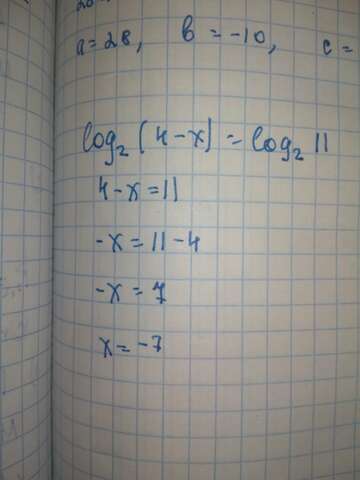 a = 28, b = -10, c =
log₂ (4-x) = log₂ 11
4-x = 11
-x = 11-4
-x = 7
x = -7